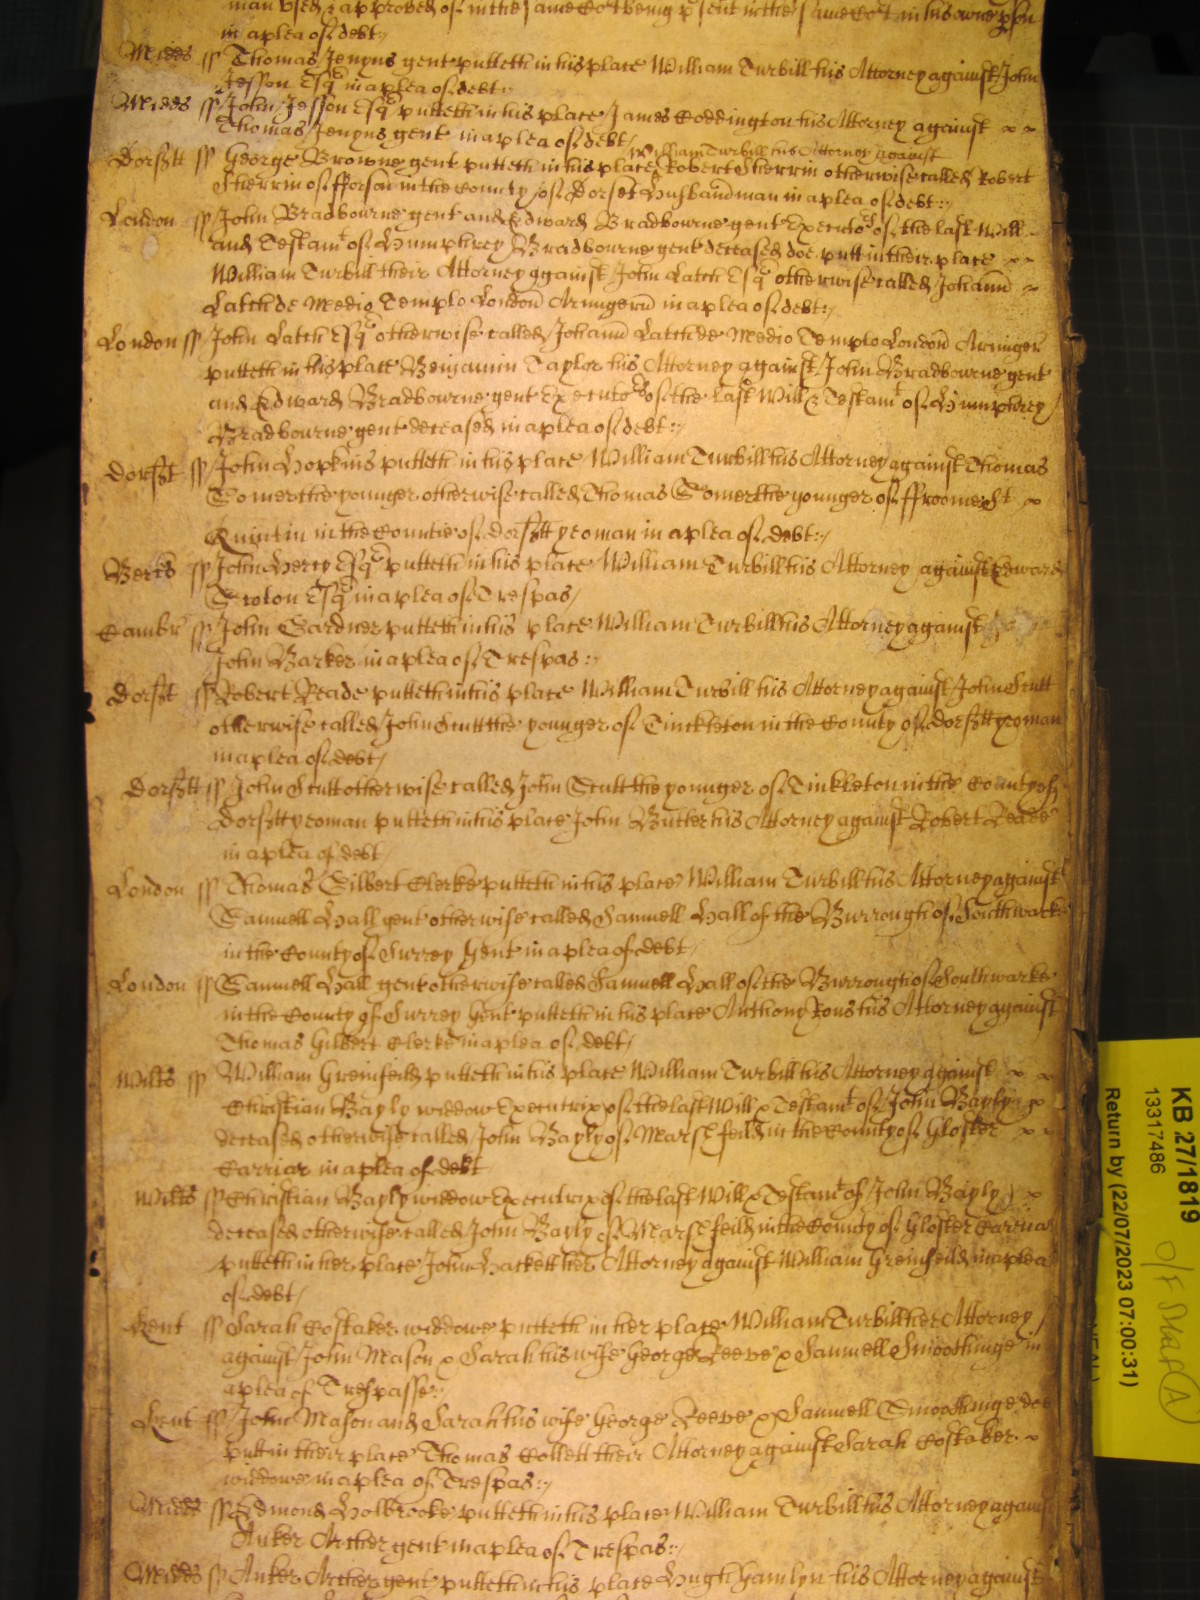 man used & approved of in the same Cort being p sent in the same Cort in his owne pson
in a plea of debt:/
Midds ss Thomas Jenyns gent putteth in his place William Turbill his Attorney against John
Jesson Esqr in a plea of debt:
Midds ss John Jesson Esqr putteth in his place James Coddington his Attorney against
Thomas Jenyns gent in a plea of debt/
William Turbill his Attorney against
Dorsett ss George Browne gent putteth in his place Robert Sherrin otherwise called Robert
Sherrin of fforson in the County of Dorset husbandman in a plea of debt:/
London ss John Bradbourne gent and Edward Bradbourne gent Executors of the last Will
and Testamt of Humphrey Bradbourne gent deceased doe putt in their place
William Turbill their Attorney against John Latch Esqr otherwise called Johann
Latch de Medio Templo London Armigeru in a plea of debt:/
London ss John Latch Esqr otherwise called Johann Latch de Medio Templo London Armiger
putteth in his place Benjamin Taylor his Attorney against John Bradbourne gent
and Edward Bradbourne gent Executors of the last Will & Testamt of Humphrey
Bradbourne gent deceased in a plea of debt:/
Dorsst ss John Hopkins putteth in his place William Turbill his Attorney against Thomas
Tomer the younger otherwise called Thomas Tomer the younger of ffroome St
Quintin in the Countie of Dorsett yeoman in a plea of debt:/
Berks ss John Esqr putteth in his place William Turbill his Attorney against Edward
Esqr in a plea of Trespas/
Cambr ss John Gardner putteth in his place William Turbill his Attorney against
John Barker in a plea of Trespas:/
Dorsst ss Robert Reade putteth in his place William Turbill his Attorney against John Scutt
otherwise called John Scutt the younger of Tinckleton in the County of Dorsett yeoman
in a plea of debt/
Dorsett ss John Scutt otherwise called John Scutt the younger of Tinkleton in the County of
Dorsett yeoman putteth in his place John Butler his Attorney against Robert Reade
in a plea of debt/
London ss Thomas Gilbert Clerke putteth in his place William Turbill his Attorney against
Samuell Hall gent otherwise called Samuell Hall of the Burrough of Southwark
in the County of Surrey Gent in a plea of debt/
London ss Samuell Hall gent otherwise called Samuell Hall of the Burrough of Southwarke
in the County of Surrey Gent putteth in his place Anthony Rous his Attorney against
Thomas Gilbert Clerke in a plea of debt/
Wilts ss William Greinfeild putteth in his place William Turbill his Attorney against
Christian Bayly widdow Executrix of the last Will & Testamt of John Bayly
deceased otherwise called John Bayly of Marsfeild in the County of Gloster
Carriar in a plea of debt
Wilts ss Christian Bayly widdow Executrix of the last Will & Testamt of John Bayly
deceased otherwise called John Bayly of Marsfeild in the County of Gloster Carriar
putteth in her place John Hackett her Attorney against William Greinfeild in a plea
of debt/
Kent ss Sarah Costaker widdowe putteth in her place William Turbill her Attorney
against John Mason & Sarah his wife George Reeve & Samuell Smoothinge in
a plea of Trespasse:/
Kent ss John Mason and Sarah his wife George Reeve & Samuell Smoothinge doe
putt in their place Thomas Collett their Attorney against Sarah Costaker
widdowe in a plea of Trespas:/
Midds ss Edmond Holbrooke putteth in his place William Turbill his Attorney against
Anker Archer gent in a plea of Trespas:/
Midds ss Anker Archer gent putteth in his place Hugh Hamlyn his Attorney against
KB 27/1819
13317486
Return by (22/07/2023 07:00:31)